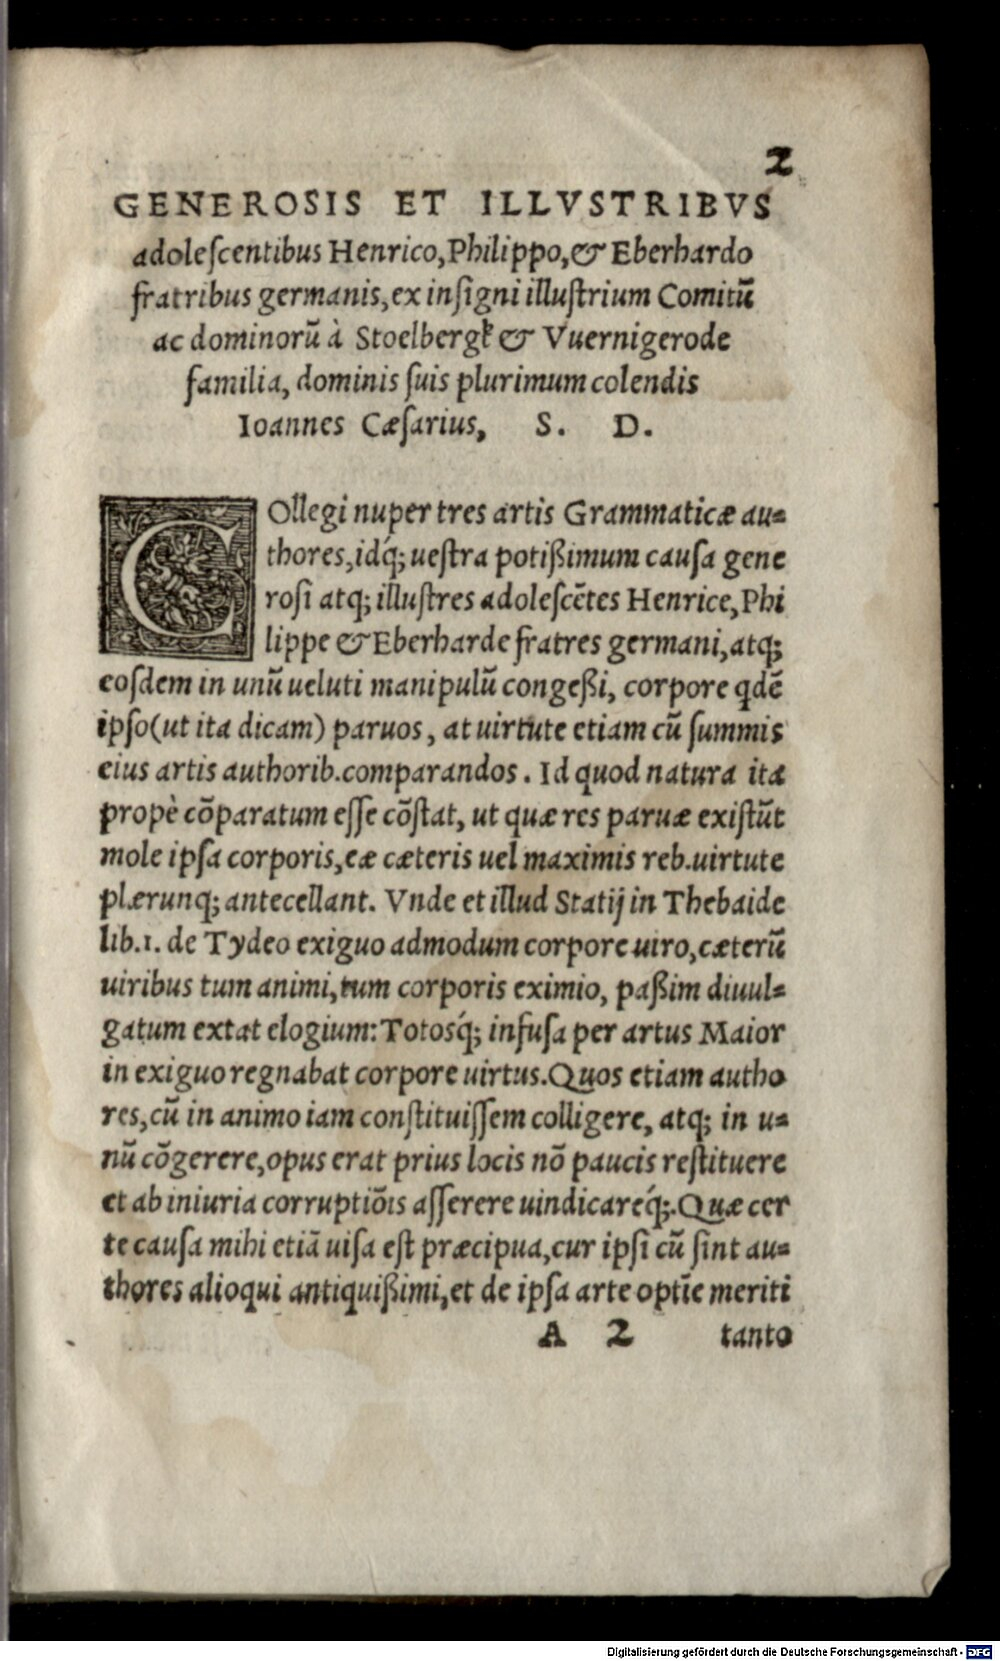 2
GENEROSIS ET ILLVSTRIBVS
adoleſcentibus Henrico, Philippo, & Eberhardo
fratribus germanis, ex inſigni illuſtrium Comitū
ac dominorū à Stoelbergk & Vuernigerode
familia, dominis ſuis plurimum colendis
Ioannes Cæſarius, S. D.
COllegi nuper tres artis Grammaticæ au=
thores, idq́; ueſtra potißimum cauſa gene
roſi atq; illuſtres adoleſcētes Henrice, Phi
lippe & Eberharde fratres germani, atq;
eoſdem in unū ueluti manipulū congeßi, corpore qdē
ipſo (ut ita dicam) paruos, at uirtute etiam cū ſummis
eius artis authorib. comparandos. Id quod natura ita
propè cōparatum eſſe cōſtat, ut quæ res paruæ exiſtūt
mole ipſa corporis, eæ cæteris uel maximis reb. uirtute
plærunq; antecellant. Vnde et illud Statij in Thebaide
lib. 1. de Tydeo exiguo admodum corpore uiro, cæterū
uiribus tum animi, tum corporis eximio, paßim diuul=
gatum extat elogium: Totosq́; infuſa per artus Maior
in exiguo regnabat corpore uirtus. Quos etiam autho
res, cū in animo iam conſtituiſſem colligere, atq; in u=
nū cōgerere, opus erat prius locis nō paucis reſtituere
et ab iniuria corruptiōis aſſerere uindicareq́;. Quæ cer
te cauſa mihi etiā uiſa eſt præcipua, cur ipſi cū ſint au=
thores alioqui antiquißimi, et de ipſa arte optīe meriti
A 2 tanto
Digitalisierung gefördert durch die Deutsche Forschungsgemeinschaft - DFG